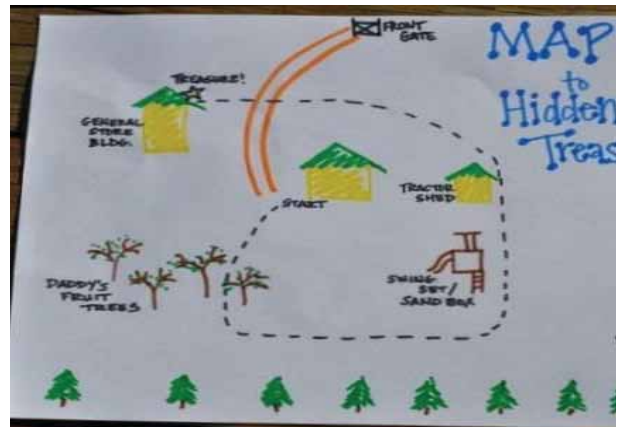 FRONT
GATE
MAP
to
Hidden
Treas
TREASURE!
GENERAL
STORE
BLDG.
START
TRACTOR
SHED
DADDY'S
FRUIT
TREES
SWING
SET/
SAND BOX